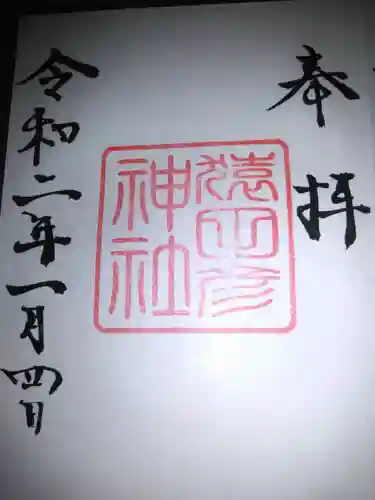 奉拝
猿田彦
神社
令和二年一月四日